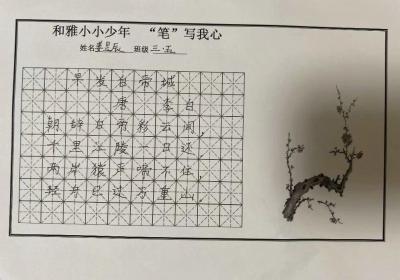 和雅小小少年 “笔”写我心
姓名 星辰 班级 三.五
早发白帝城
唐 李白
朝辞白帝彩云间，
千里江陵一日还，
两岸猿声啼不住，
轻舟已过万重山。